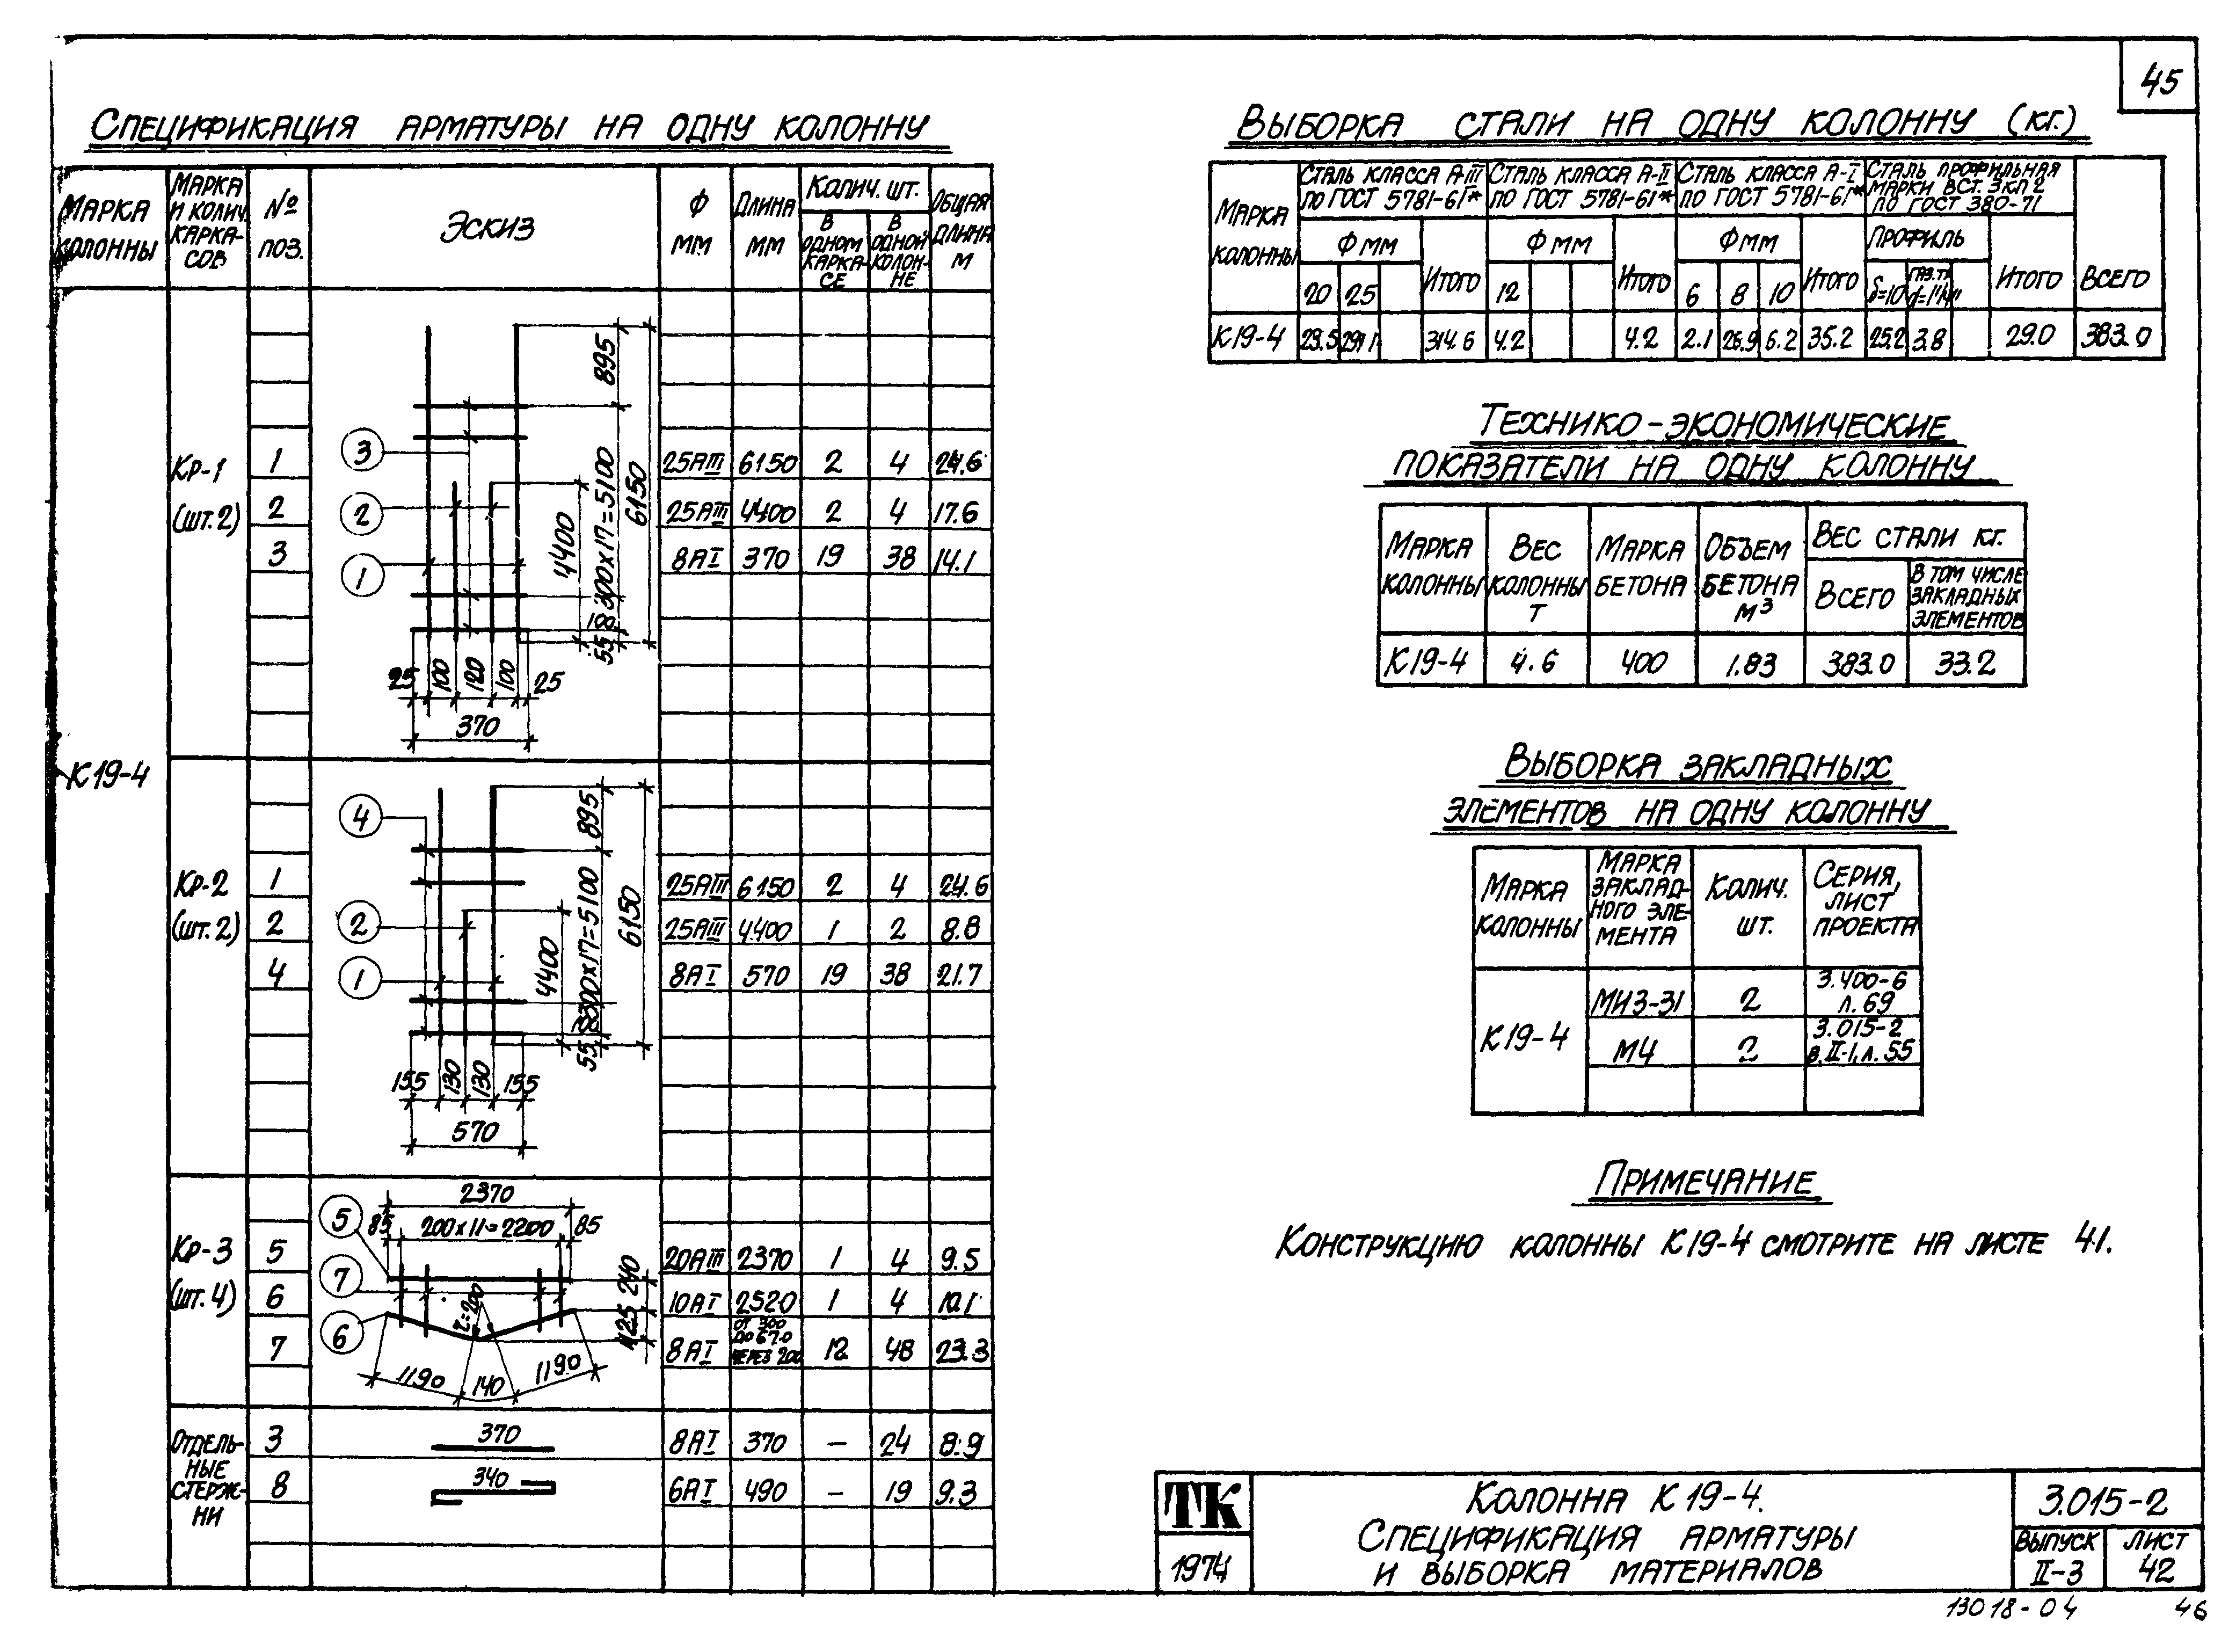 45
Спецификация арматуры на одну колонну
Марка колонны
Марка и колич. каркасов
№ поз.
Эскиз
Ф мм
Длина мм
Колич. шт.
В одном каркасе
В одной колонне
Общая длина м
К19-4
Кр-1 (шт. 2)
1 25АIII 6150 2 4 24.6
2 25АIII 4400 2 4 17.6
3 8АI 370 19 38 14.1
3
2
1
895
300х17=5100
6150
4400
100
55
25 100 120 100 25
370
Кр-2 (шт. 2)
1 25АIII 6150 2 4 24.6
2 25АIII 4400 1 2 8.8
4 8АI 570 19 38 21.7
4
2
1
895
300х17=5100
6150
4400
55
155 130 130 155
570
Кр-3 (шт. 4)
5 20АIII 2370 1 4 9.5
6 10АI 2520 1 4 10.1
7 8АI от 300 до 670 через 200 12 48 23.3
5
7
6
2370
85 200х11=2200 85
240
425
r=200
1190 140 1190
Отдельные стержни
3 370 8АI 370 – 24 8.9
8 340 6АI 490 – 19 9.3
Выборка стали на одну колонну (кг.)
Марка колонны
Сталь класса А-III по ГОСТ 5781-61*
Сталь класса А-II по ГОСТ 5781-61*
Сталь класса А-I по ГОСТ 5781-61*
Сталь профильная марки Вст. 3кп2 по ГОСТ 380-71
Ф мм Итого Ф мм Итого Ф мм Итого Профиль Итого Всего
20 25 12 6 8 10 δ=10 газ. тр. d=1"1/4
К19-4 23.5 291.1 314.6 4.2 4.2 2.1 26.9 6.2 35.2 25.2 3.8 29.0 383.0
Технико-экономические
показатели на одну колонну
Марка колонны
Вес колонны т
Марка бетона
Объем бетона м³
Вес стали кг.
Всего
В том числе закладных элементов
К19-4 4.6 400 1.83 383.0 33.2
Выборка закладных
элементов на одну колонну
Марка колонны
Марка закладного элемента
Колич. шт.
Серия, лист проекта
К19-4
МИ3-31 2 3.400-6 л. 69
М4 2 3.015-2 в. II-1, л. 55
Примечание
Конструкцию колонны К19-4 смотрите на листе 41.
ТК
1974
Колонна К19-4.
Спецификация арматуры
и выборка материалов
3.015-2
Выпуск II-3
Лист 42
13018-04 46